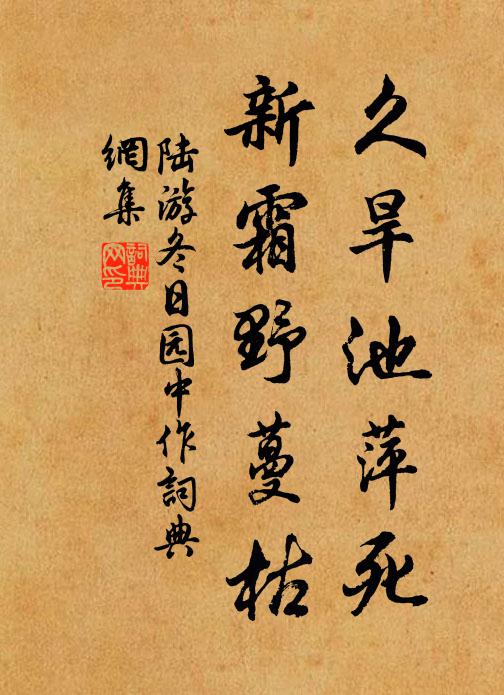 久旱池萍死
新霜野蔓枯
陆游冬日园中作詞典
網集
詞典
网印